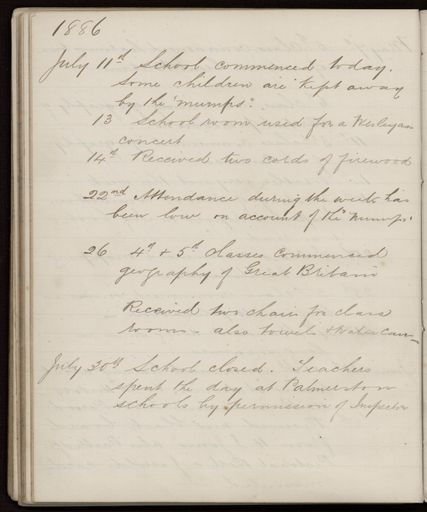 1886
July 11th School commenced today.
Some children are kept away
by the 'mumps'.
13 School room used for a Wesleyan
concert
14th Received two cords of firewood
22nd Attendance during the week has
been low on account of the 'mumps'
26 4th & 5th classes commenced
geography of Great Britain
Received two chair for class
room - also towels & Water Can
July 30th School closed. Teachers
spent the day at Palmerston
schools by permission of Inspector